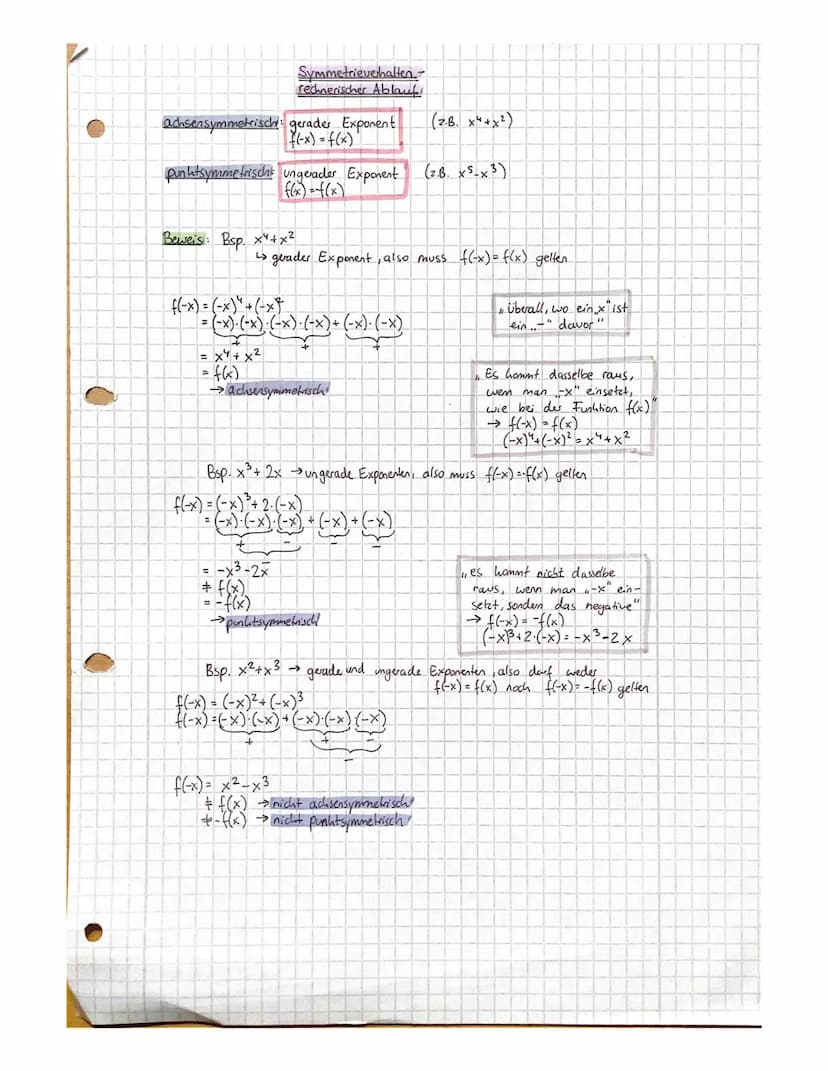 Symmetrieverhalten -
rechnerischer Ablauf:
achsensymmetrisch: gerader Exponent (z.B. x⁴+x²)
f(-x) = f(x)
punktsymmetrisch: ungerader Exponent (z.B. x⁵-x³)
f(x) = -f(x)
Beweis: Bsp. x⁴+x²
↳ gerader Exponent, also muss f(-x) = f(x) gelten
f(-x) = (-x)⁴ + (-x)²
= (-x)·(-x)·(-x)·(-x) + (-x)·(-x)
+ + +
= x⁴ + x²
= f(x)
→ achsensymmetrisch
„Überall, wo ein „x“ ist
ein „-“ davor“
„Es kommt dasselbe raus,
wenn man „-x“ einsetzt,
wie bei der Funktion f(x)“
→ f(-x) = f(x)
(-x)⁴+(-x)² = x⁴+x²
Bsp. x³+2x → ungerade Exponenten, also muss f(-x) = -f(x) gelten
f(-x) = (-x)³ + 2·(-x)
= (-x)·(-x)·(-x) + (-x) + (-x)
+ - - -
-
= -x³-2x
≠ f(x)
= -f(x)
→ punktsymmetrisch
„es kommt nicht dasselbe
raus, wenn man „-x“ ein-
setzt, sondern das negative“
→ f(-x) = -f(x)
(-x)³+2·(-x) = -x³-2x
Bsp. x²+x³ → gerade und ungerade Exponenten, also darf weder
f(-x) = f(x) noch f(-x) = -f(x) gelten
f(-x) = (-x)² + (-x)³
f(-x) = (-x)·(-x) + (-x)·(-x)·(-x)
+ + -
-
f(-x) = x² - x³
≠ f(x) → nicht achsensymmetrisch
≠ -f(x) → nicht punktsymmetrisch